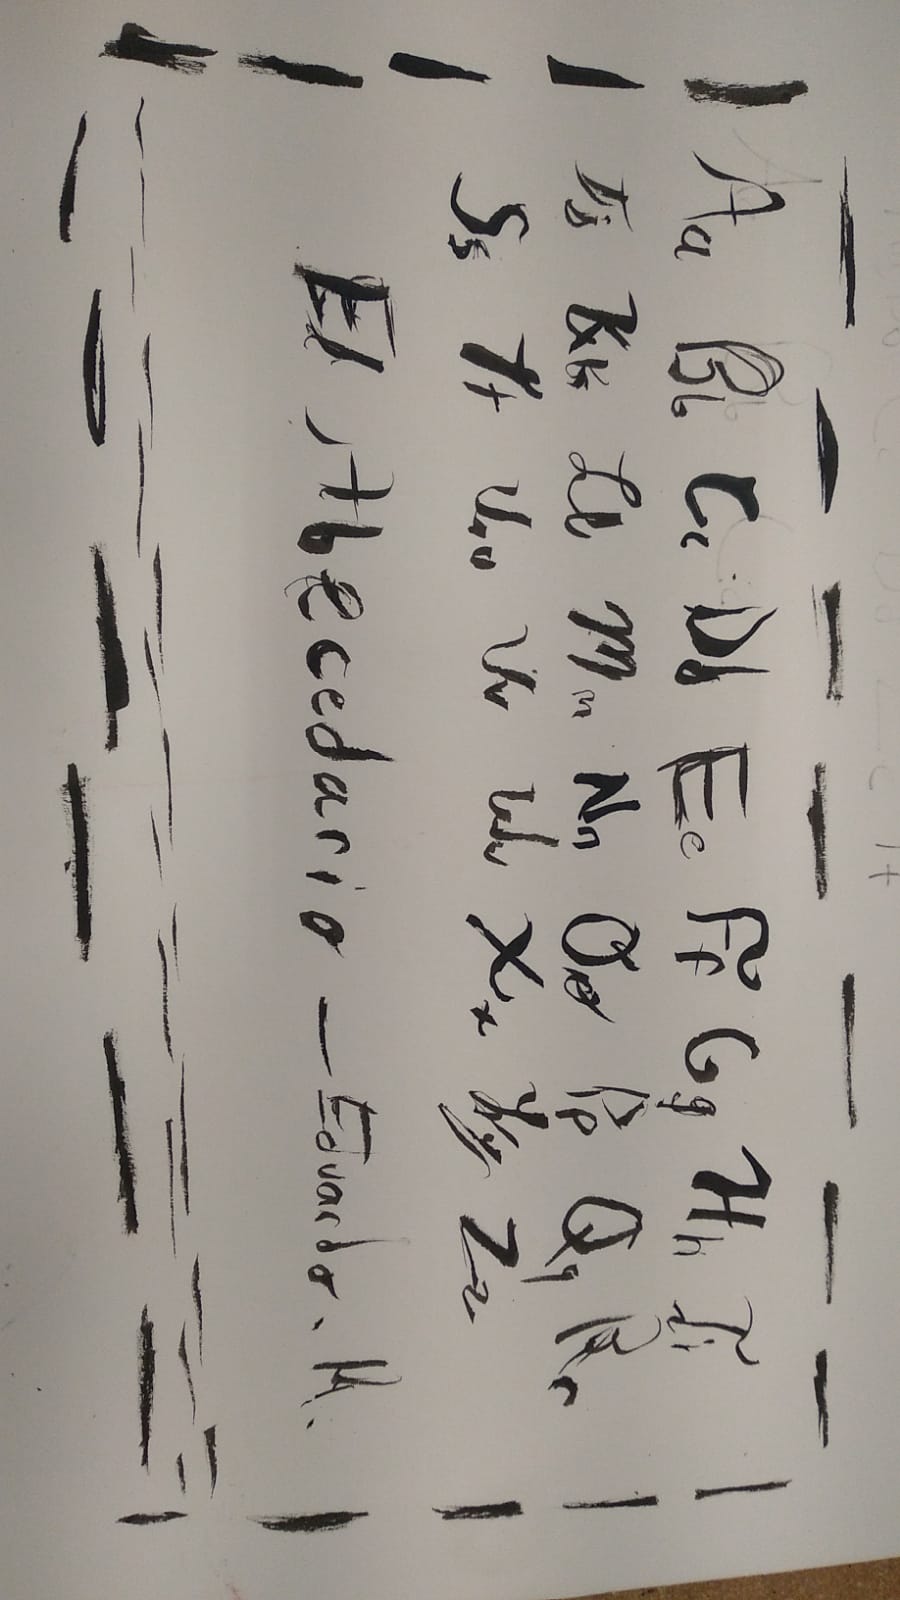 Aa Bb Cc Dd Ee Ff Gg Hh Ii
Jj Kk Ll Mm Nn Oo Pp Qq Rr
Ss Tt Uu Vv Ww Xx Yy Zz
El Abecedario — Eduardo. H.